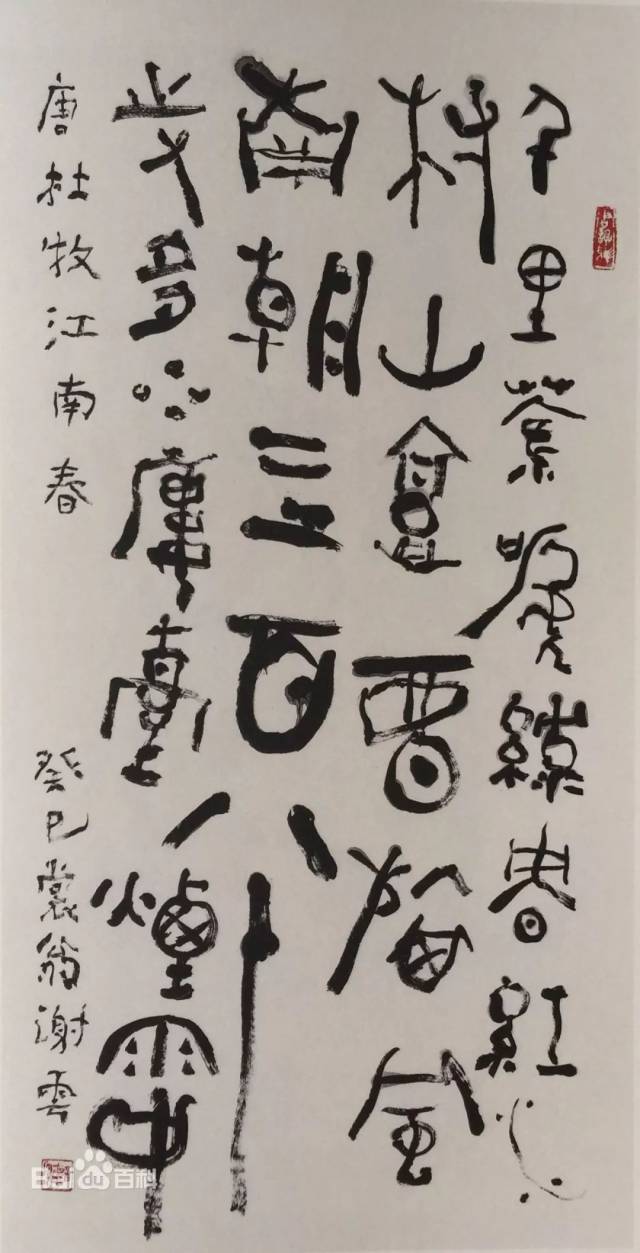 千里鶯嗁綠映紅水
村山郭酒旗風
南朝四百八十
寺多少樓臺煙雨中
唐杜牧江南春
癸巳裳翁谢雲
Baidu百科